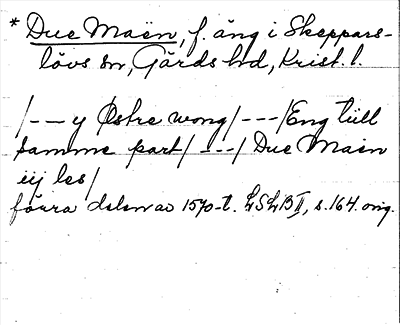 * Due Maën, f. äng i Skeppars-
lövs sn, Gärds hd, Krist. l.
/--- y Østre wong/---/Eng till
samme part/---/Due Maën
iij les/
förra delen av 1570-t. LSLB II, s. 164. orig.